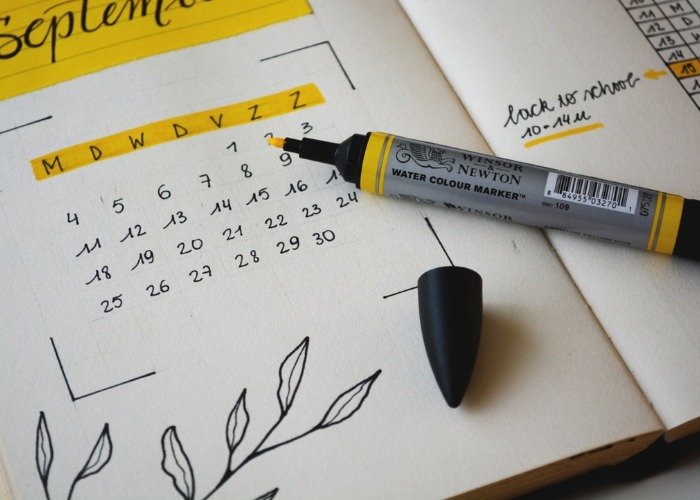 September
M D W D V Z Z
1 2 3
4 5 6 7 8 9
11 12 13 14 15 16
18 19 20 21 22 23 24
25 26 27 28 29 30
back to school
10-14u
13
14
15
WINSOR
& NEWTON
WATER COLOUR MARKER™
WINSOR
8 84955 03270 1
109